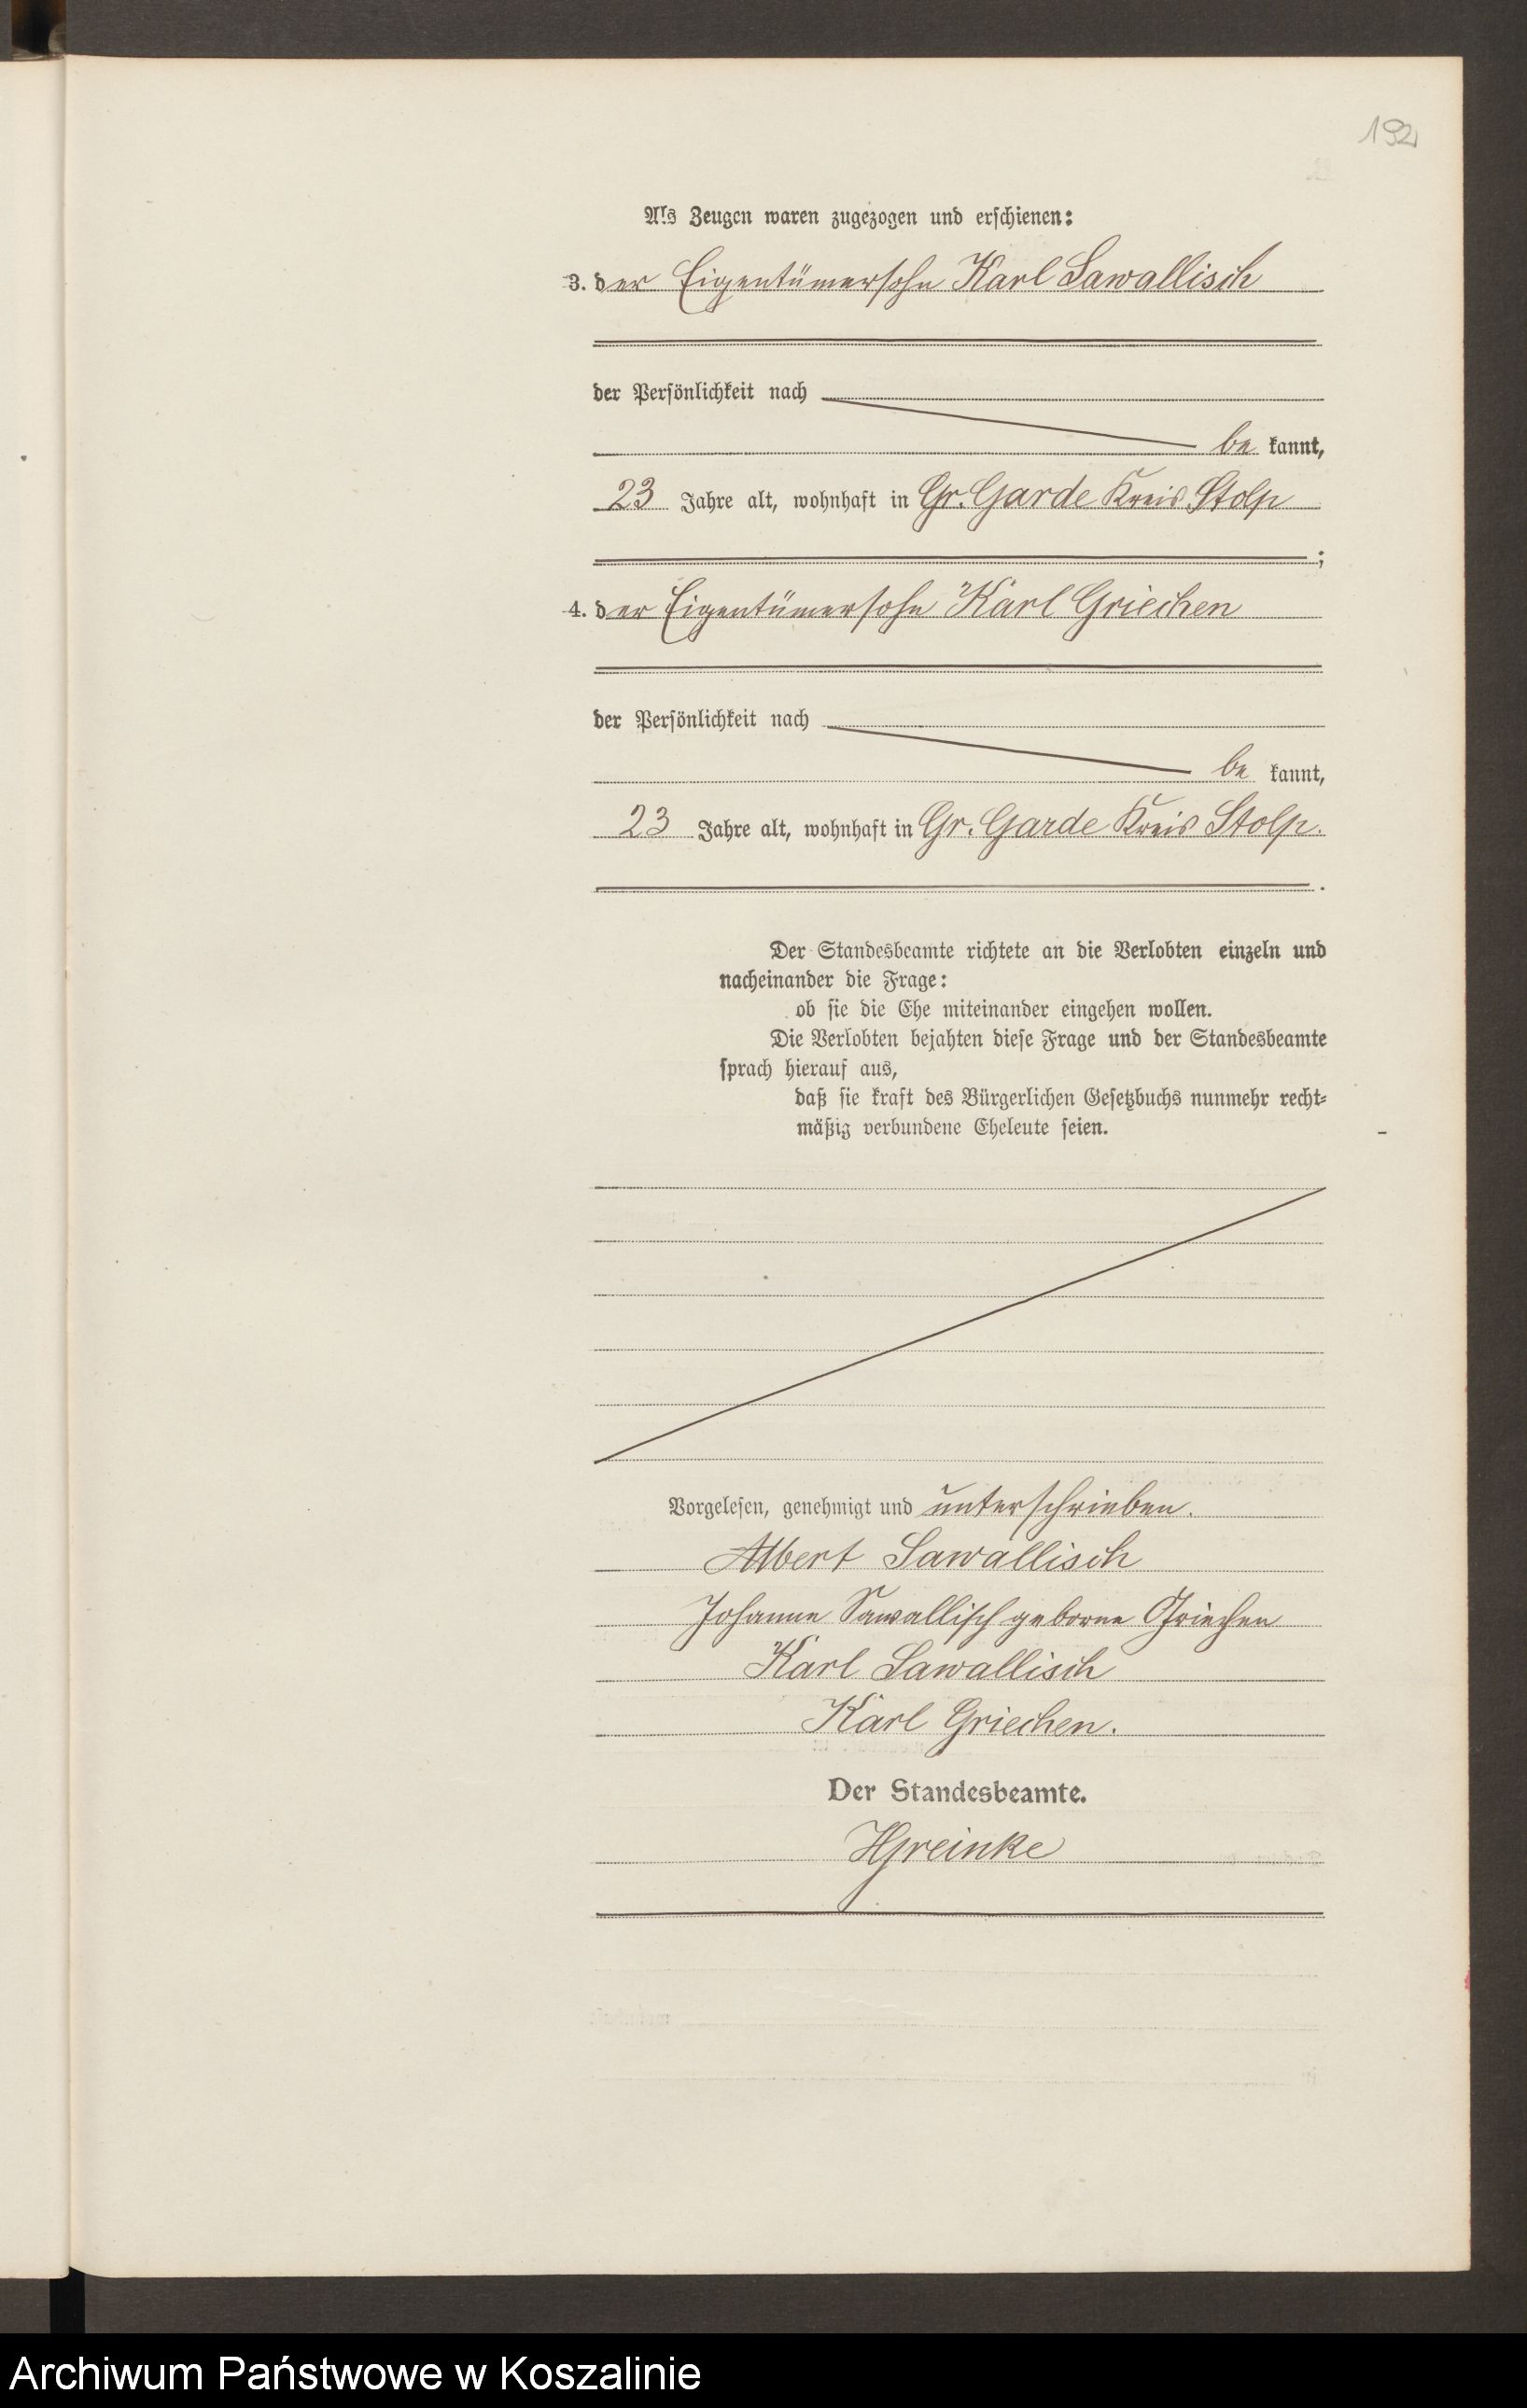 192
Als Zeugen waren zugezogen und erschienen:
3. der Eigentümersohn Karl Sawallisch
der Persönlichkeit nach
be kannt,
23 Jahre alt, wohnhaft in Gr. Garde Kreis Stolp
;
4. der Eigentümersohn Karl Griechen
der Persönlichkeit nach
be kannt,
23 Jahre alt, wohnhaft in Gr. Garde Kreis Stolp.
.
Der Standesbeamte richtete an die Verlobten einzeln und
nacheinander die Frage:
ob sie die Ehe miteinander eingehen wollen.
Die Verlobten bejahten diese Frage und der Standesbeamte
sprach hierauf aus,
daß sie kraft des Bürgerlichen Gesetzbuchs nunmehr recht-
mäßig verbundene Eheleute seien.
Vorgelesen, genehmigt und unterschrieben.
Albert Sawallisch
Johanne Sawallisch geborne Griechen
Karl Sawallisch
Karl Griechen.
Der Standesbeamte.
Archiwum Państwowe w Koszalinie